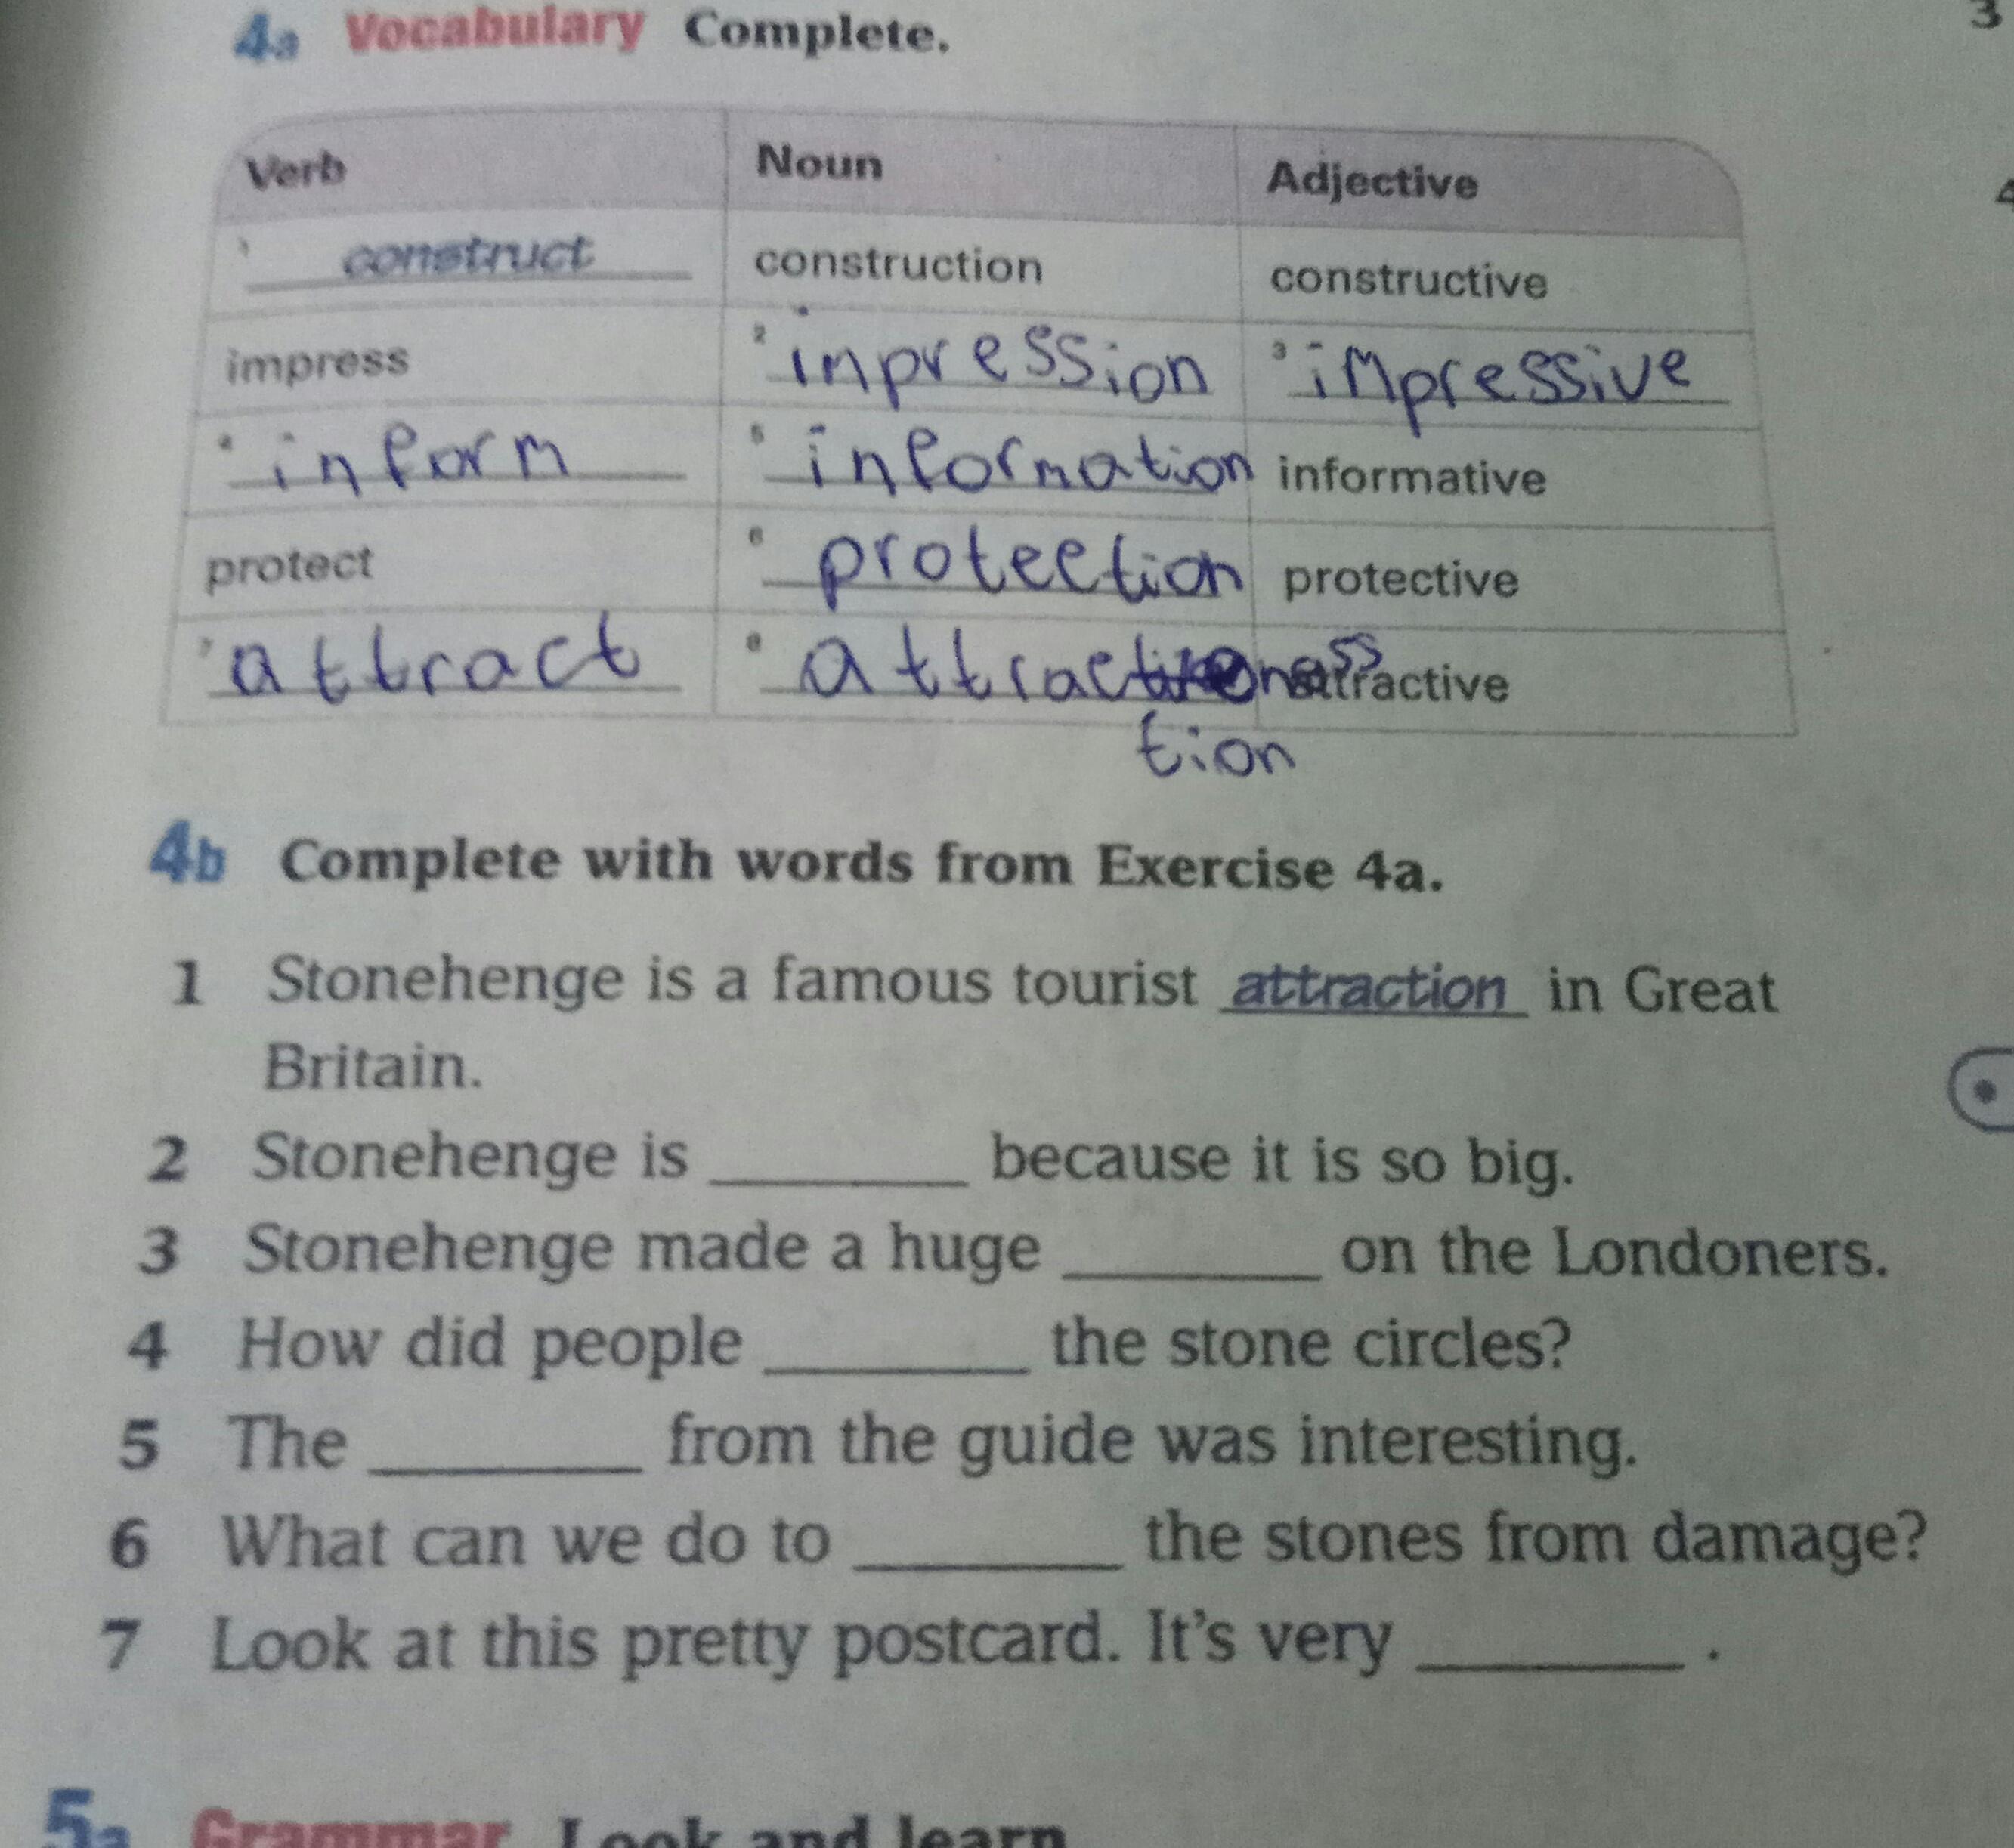 3
4a Vocabulary Complete.
Verb Noun Adjective
1 construct construction constructive
impress 2 inpression 3 impressive
4
4 inform 5 information informative
protect 6 protection protective
7 attract 8 attraction attractive
tion
4b Complete with words from Exercise 4a.
1 Stonehenge is a famous tourist attraction in Great
Britain.
2 Stonehenge is ________ because it is so big.
3 Stonehenge made a huge ________ on the Londoners.
4 How did people ________ the stone circles?
5 The ________ from the guide was interesting.
6 What can we do to ________ the stones from damage?
7 Look at this pretty postcard. It's very ________ .
5a Grammar Look and learn